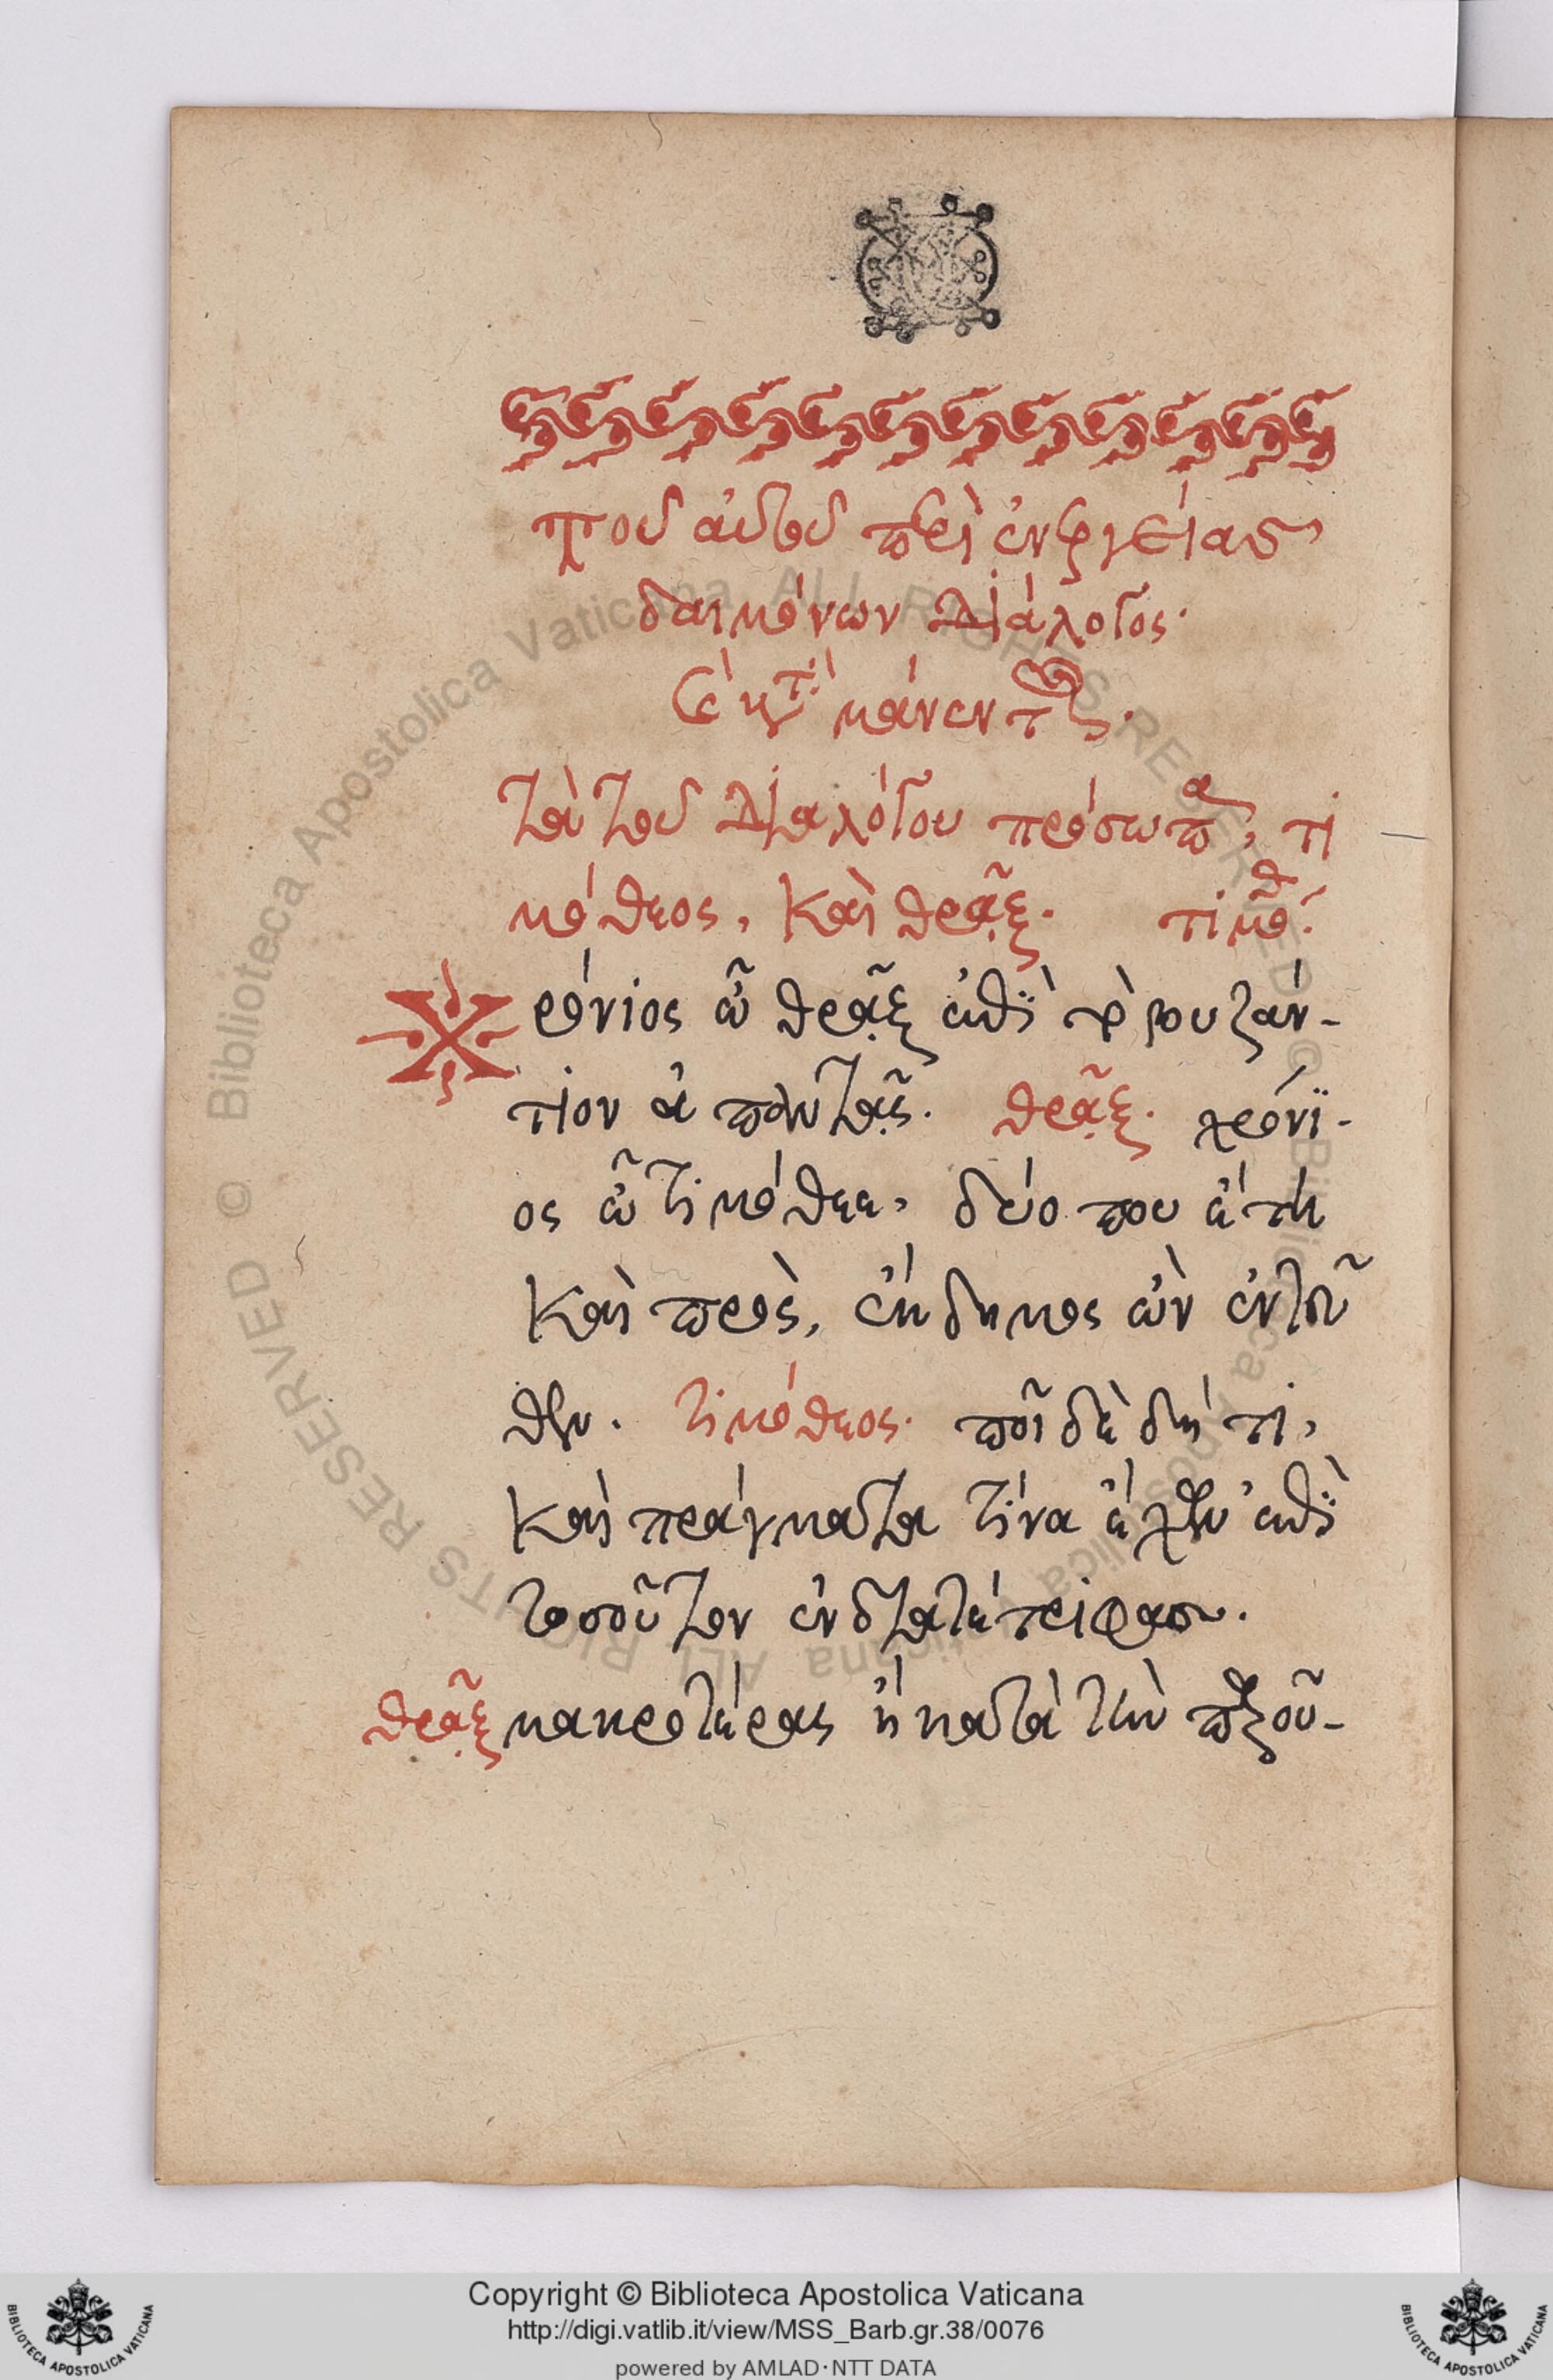 τοῦ αὐτοῦ περὶ ἐνεργείας
δαιμόνων διάλογος·
μάνεντος.
τὰ τοῦ διαλόγου πρόσωπα, τι
μόθεος, καὶ θρᾷξ. τιμόθ
Χρόνιος ὦ θρᾷξ ἐπὶ τὸ βυζάν-
τιον ἀπαντᾷς. θρᾷξ. χρόνι-
ος ὦ τιμόθεε, δύο που ἔτη
καὶ πρὸς, ἔκδημος ὢν ἐντεῦ
θεν. τιμόθεος. ποῖ δὲ δή τι,
καὶ πράγματα τίνα ἔχων ἐπὶ
τοσοῦτον ἐνδιατέτριφας.
θρᾷξ μακροτέρας ἢ κατὰ τὴν παροῦ-
Copyright © Biblioteca Apostolica Vaticana
http://digi.vatlib.it/view/MSS_Barb.gr.38/0076
powered by AMLAD·NTT DATA